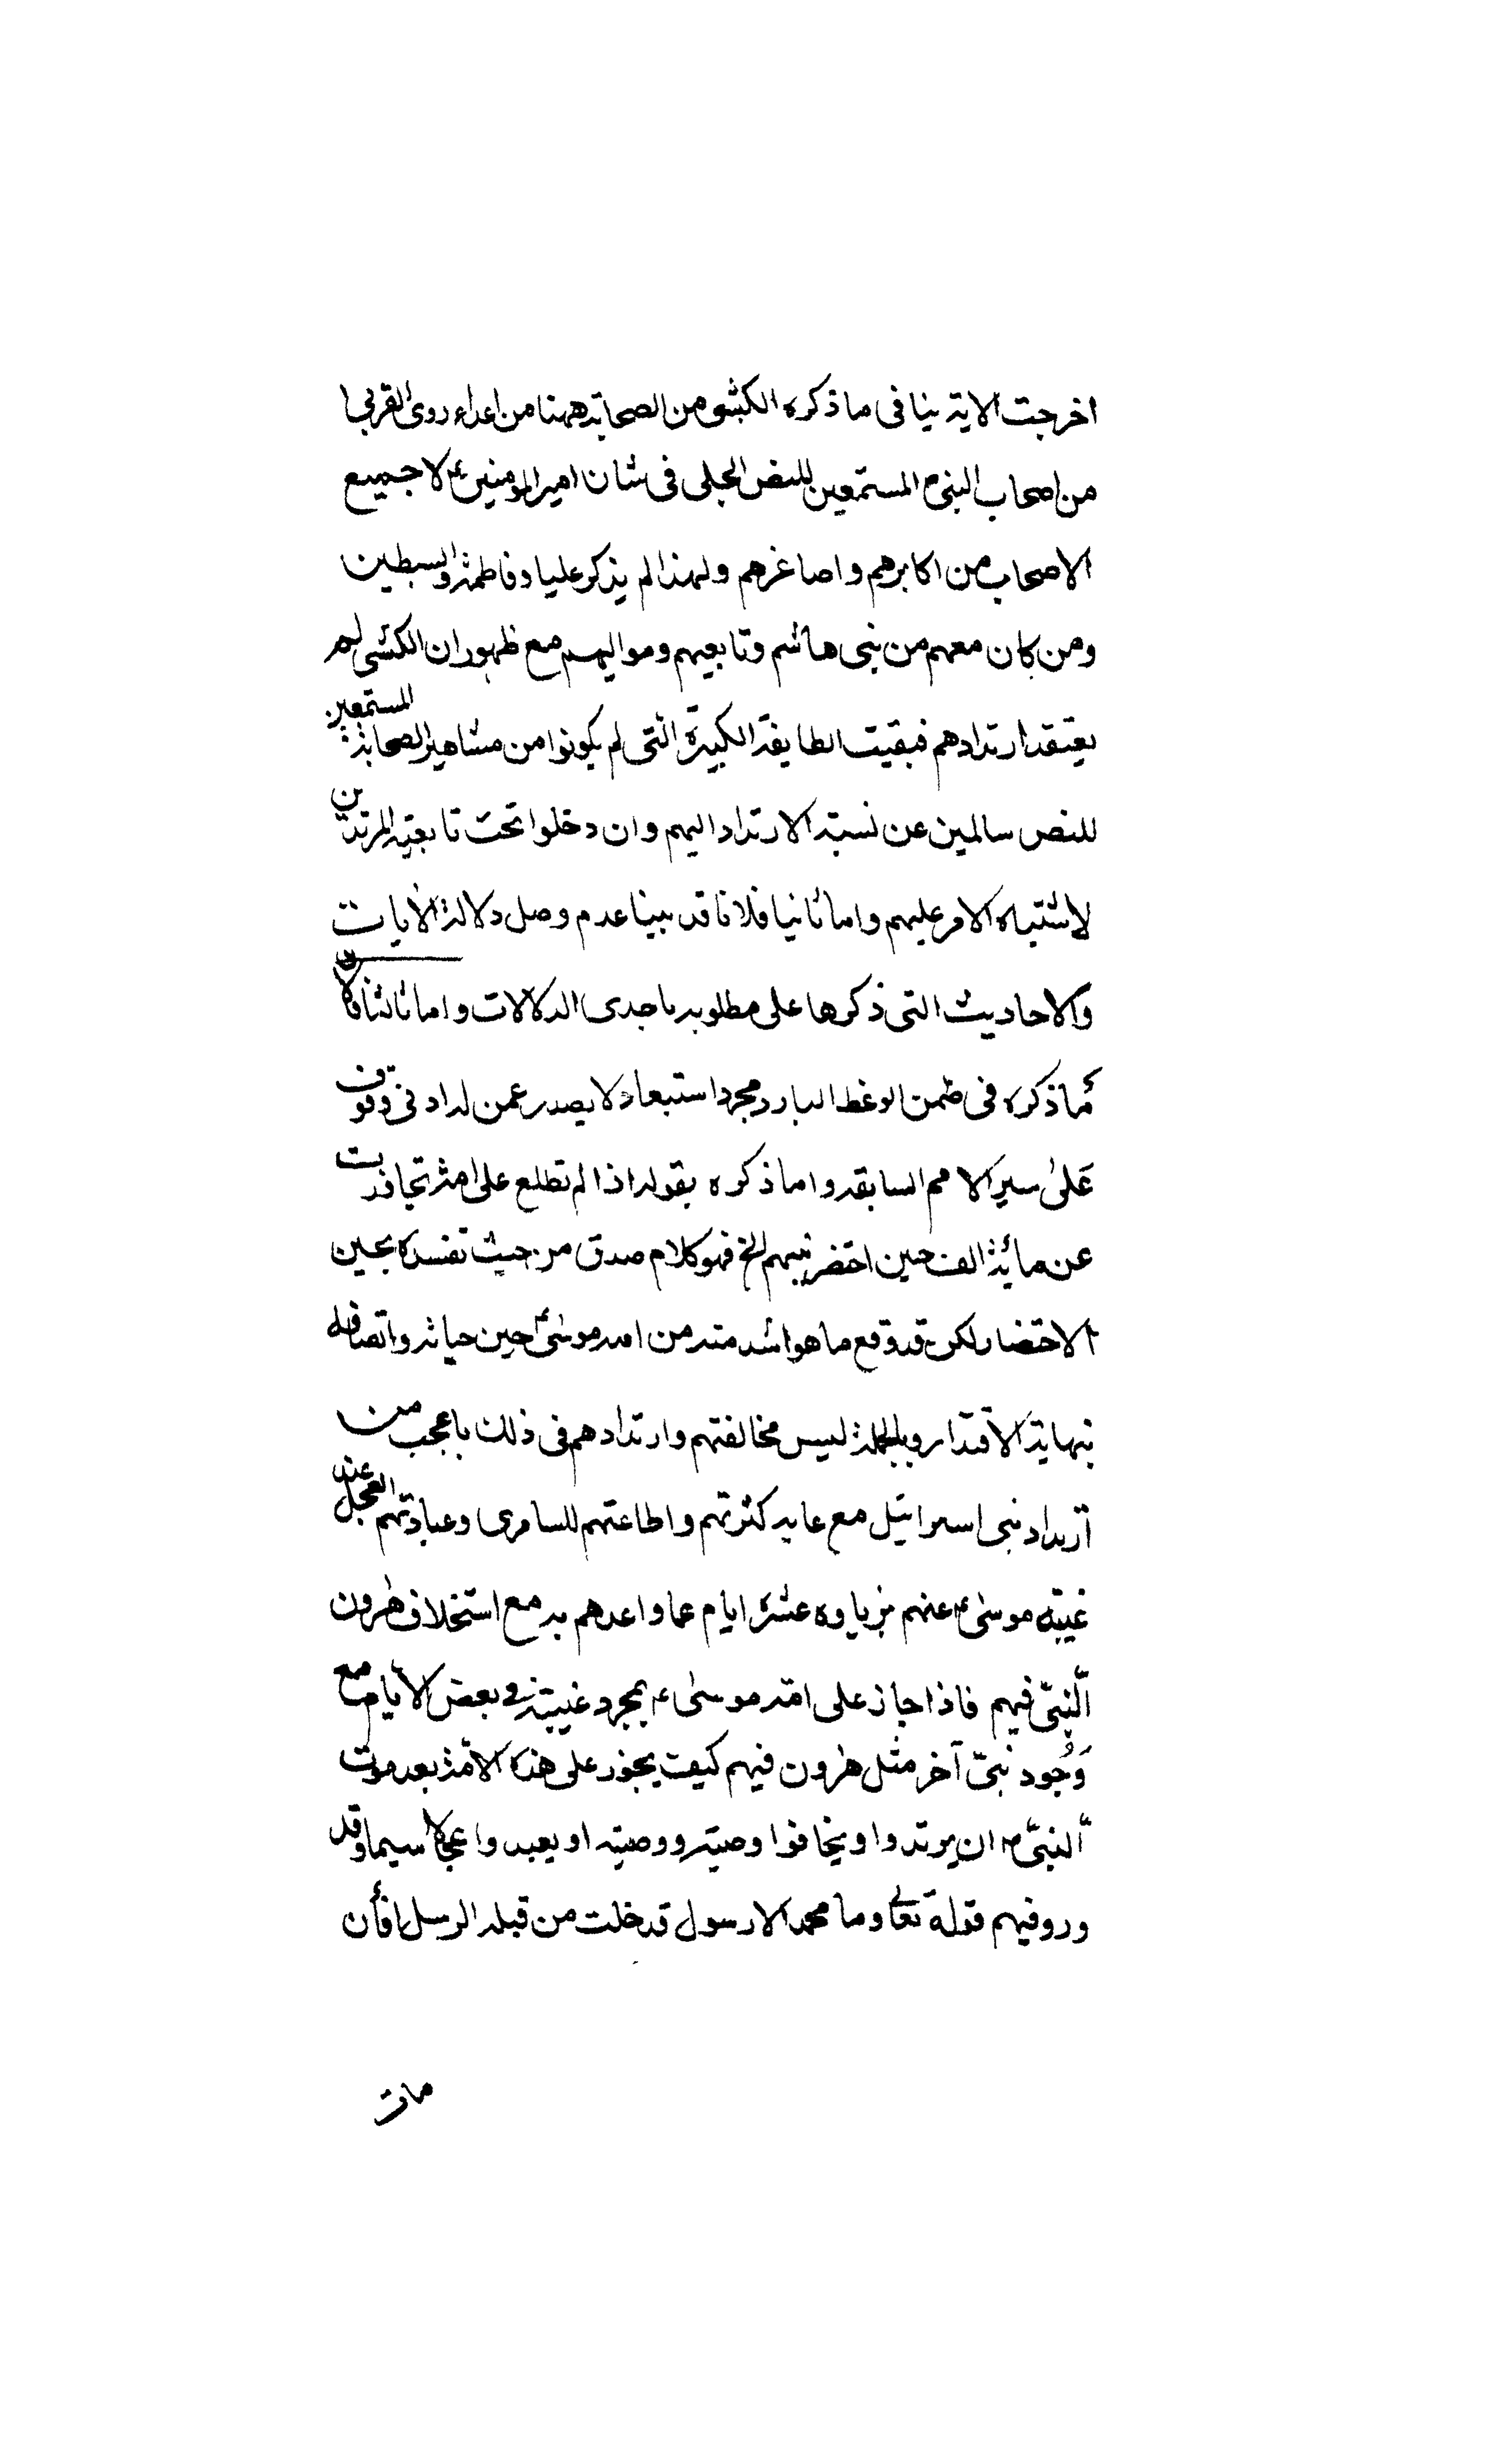 اخرجت الاية ينافى ما ذكره الكشى من الصحابة ههنا من اعداء روى القربى
من اصحاب النبى م المستمعين للنص الجلى فى شان امير المومنين ع لا جميع
الاصحاب من اكابرهم واصاغرهم ولهذا لم يذكر عليا وفاطمة والسبطين
ومن كان معهم من بنى هاشم وتابعيهم ومواليهم مع ظهور ان الكشى لم
يعتقد ارتدادهم فبقيت الطايفة الكبيرة التى لم يكونوا من مشاهير الصحابة المستمعين
للنص سالمين عن نسبة الارتداد اليهم وان دخلوا تحت تابعية المرتدين
لاشتباه الامر عليهم واما ثانيا فلانا قد بينا عدم وصل دلالة الايات
والاحاديث التى ذكرها على مطلوبه باحدى الدلالات واما ثالثا فلان
ما ذكره فى ضمن الوغط البارد مجرد استبعاد لا يصدر عمن له ادنى وقوف
على سير الامم السابقه واما ذكره بقوله اذا لم تطلع على امة تجافت
عن مائة الف حين احتضر نبيهم الخ فهو كلام صدق من حيث تفسده بحين
الاحتضار لكن قد وقع ما هو اشد منه من امة موسى ع حين حياته واتصافه
بنهاية الاقتدار وبالجملة ليس مخالفتهم وارتدادهم فى ذلك باعجب من
ارتداد بنى اسرائيل مع غايه كثرتهم واطاعتهم للسامرى وعبادتهم العجل عند
غيبة موسى ع عنهم بزياده عشرة ايام عما واعدهم به مع استخلاف هٰرون
النبىّ فيهم فاذا جاز على امة موسى ء بمجرد غيبته فى بعض الايام مع
وَجُود نبىّ آخر مثل هٰرون فيهم كيف يجوز على هذه الامة بعد موت
النبىّ م ان يرتدوا ويخافوا وصيته ووصيته او يعبدوا عجلا سيما وقد
ورد فيهم قوله تعالى وما محمد الا رسول قد خلت من قبله الرسل افأن
مات